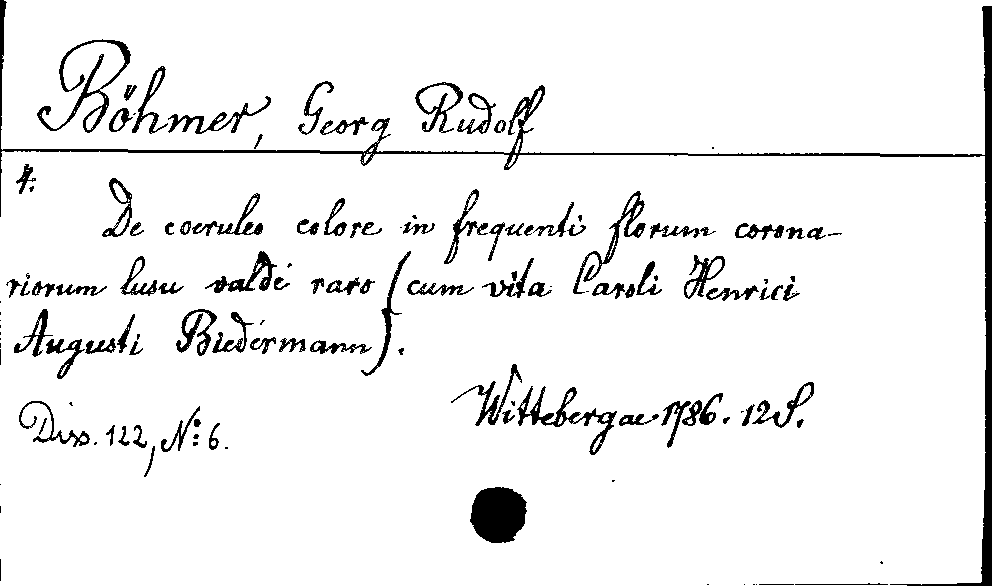 Böhmer, Georg Rudolf
4.
De coeruleo colore in frequenti florum corona-
riorum lusu valdé raro (cum vita Caroli Henrici
Augusti Biedermann).
Wittebergae 1786. 12 S.
Diss. 122, No: 6.